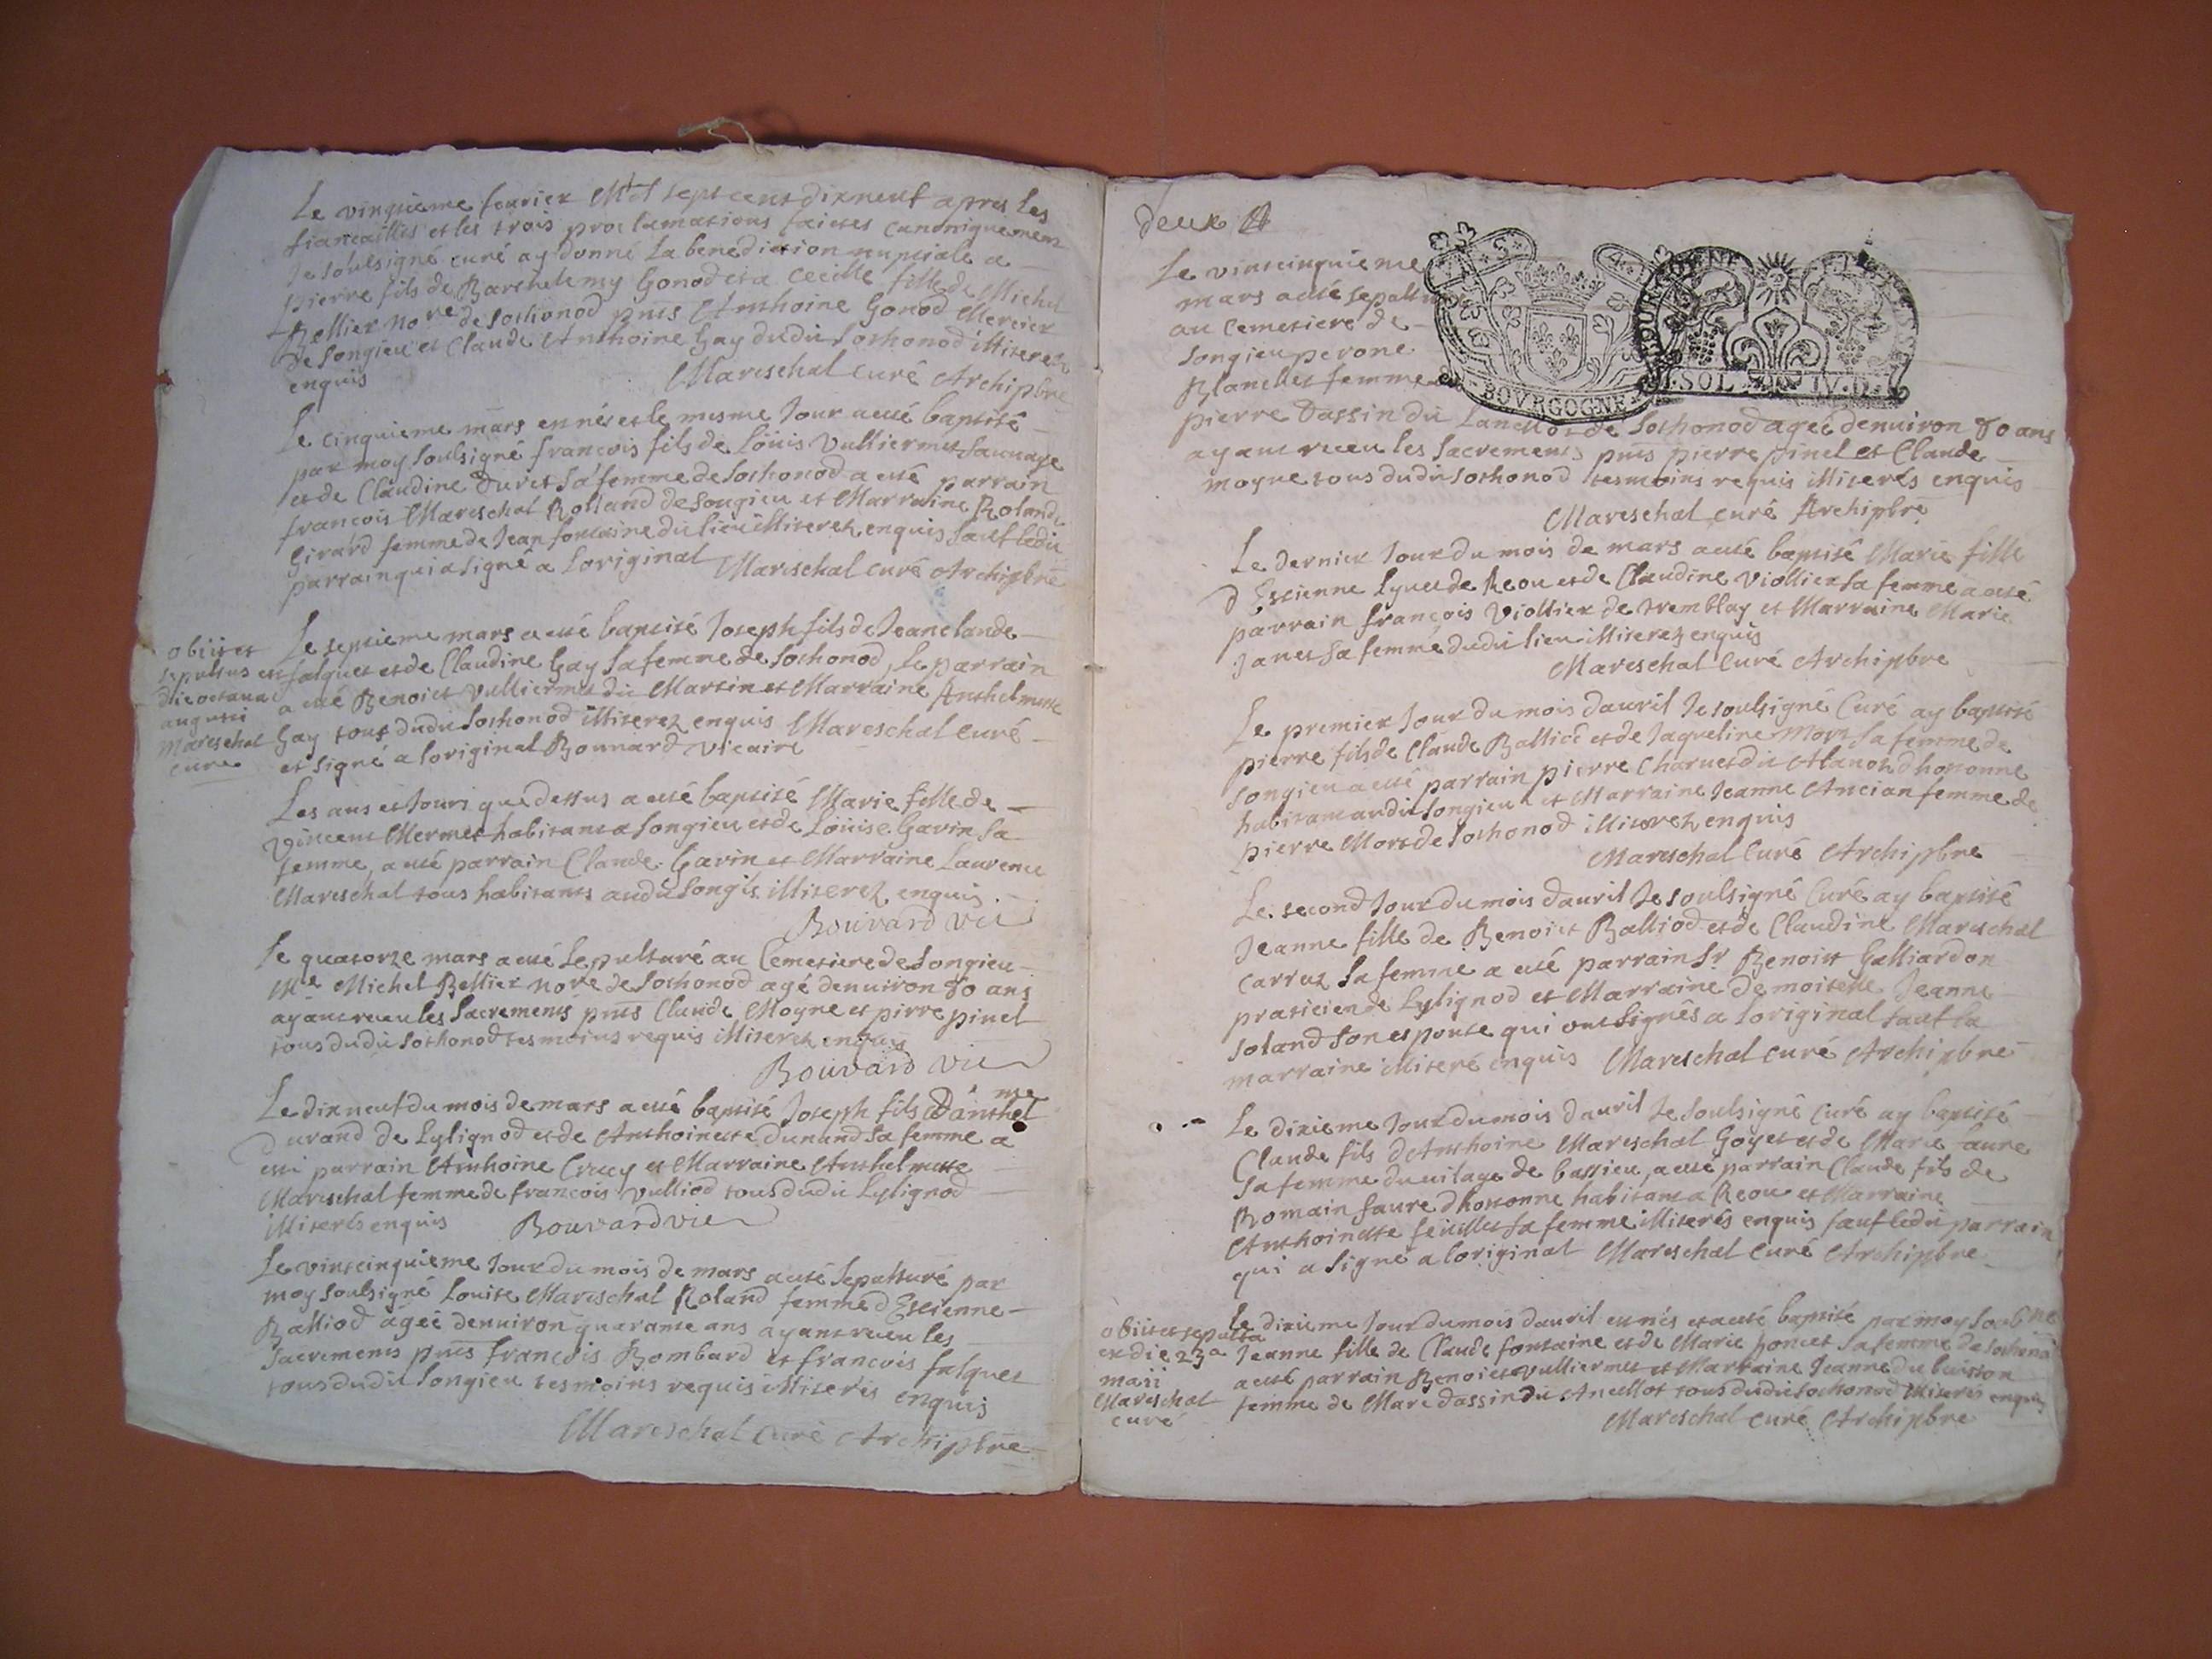 Le vingtieme feurier Mil sept cent dixneuf apres les
fiancailles et les trois proclamations faictes canoniquement
Je soubsigné curé ay donné la benediction nuptiale a
pierre fils de Barthelemy Gonod et a Cecille fille de Michel
Bellier no.re de Sothonod pnts Anthoine Gonod Mercier
de Songieu et Claude Anthoine Gay dudit Sothonod illiterez
enquis Mareschal curé Archiptre
Le cinquieme mars en né et le mesme Jour a esté baptisé
par moy soubsigné francois fils de Loüis Vulliermet Sauuage
et de Claudine Duret sa femme de Sothonod a esté parrain
francois Mareschal Rolland de Songieu et Marraine Rolande
Girard femme de Jean fontaine du lieu illiterez enquis sauf ledit
parrain qui a signé a Loriginal Mareschal curé Archiptre
obiit et
sepultus est
die octaua
augusti
Mareschal
cure
Le septieme mars a esté baptisé Joseph fils de Jeanclaude
falquet et de Claudine Gay sa femme de Sothonod, Le parrain
a esté Benoict Vulliermet dit Martin et Marraine Anthelmette
Gay tous dudit Sothonod illiterez enquis Mareschal curé
et signé a loriginal Bouuard vicaire
Les ans et Jours que dessus a esté baptisé Marie fille de
vincent Mermet habitant a Songieu et de Loüise Gavin sa
femme, a esté parrain Claude Gavin et Marraine Laurence
Mareschal tous habitants audit Songi illiterez enquis
Bouvard vic
Le quatorze mars a esté sepulturé au Cemetiere de Songieu
M.e Michel Bellier no.re de Sothonod agé denuiron 80 ans
ayant receu les Sacrements pnts Claude Moyne et pirre pinel
tous dudit Sothonod tesmoins requis illiterez enquis
Bouvard vic
Le dixneuf du mois de mars a esté baptisé Joseph fils Danthelme
Durand de Lylignod et de Anthoinette Dunand sa femme a
esté parrain Anthoine Crucy et Marraine Anthelmette
Mareschal femme de francois Vulliod tous dudit Lylignod
illiterés enquis Bouvard vic
Le vintcinquieme Jour du mois de mars a esté sepulturé par
moy soubsigné Louise Mareschal Roland femme d Estienne
Balliod agéé denuiron quarante ans ayant receu les
sacrements pnts francois Bombard et francois falquet
tous dudit Songieu tesmoins requis illiterés enquis
Mareschal curé Archiptre
deux
Le vintcinquieme
mars a esté sepultu
au Cemetiere de
Songieu perone
Blanchet femme
pierre Dassin dit Lancelot de Sothonod agéé denuiron 80 ans
ayant receu les Sacrements pnts pierre pinel et Claude
moyne tous dudit Sothonod tesmoins requis illiterés enquis
Mareschal curé Archiptre
BOURGOGNE
BOVRGOGNE
SOL IV.D.
Le dernier Jour du mois de mars a esté baptisé Marie fille
d Estienne Lyuet de Reou et de Claudine Viollier sa femme a esté
parrain francois Viollier de tremblay et Marraine Marie
Janet sa femme dudit lieu illiterez enquis
Mareschal curé Archiptre
Le premier Jour du mois dauril Je soubsigné Curé ay baptisé
pierre fils de Claude Ballicé et de Jaqueline Mort sa femme de
Songieu a esté parrain pierre Charuet dit d hotonne
habitant audit Songieu et Marraine Jeanne Ancian femme de
pierre Mort de Sothonod illiterez enquis
Mareschal Curé Archiptre
Le second Jour du mois dauril Je soubsigné Curé ay baptisé
Jeanne fille de Benoict Balliod et de Claudine Mareschal
Carruz sa femme a esté parrain Sr Benoict Galliardon
praticien de Lylignod et Marraine Demoiselle Jeanne
Soland son espouse qui ont signés a loriginal sauf la
marraine illiteré enquis Mareschal curé Archiptre
Le dixieme Jour du mois dauril Je soubsigné curé ay baptisé
Claude fils dAnthoine Mareschal Goyet et de Marie faure
sa femme du uilage de bassieu, a esté parrain Claude fils de
Romain faure d hotonne habitant a Reou et Marraine
Anthoinette feuillet sa femme illiterés enquis sauf ledit parrain
qui a signé a loriginal Mareschal curé Archiptre
obiit et sepulta
est die 23a
maii
Mareschal
curé
Le dixieme Jour du mois dauril est née et a esté baptisé par moy soubné
Jeanne fille de Claude fontaine et de Marie poncet sa femme de Sothonod
a esté parrain Benoict Vulliermet et Marraine Jeanne du buisson
femme de Marc dassin dit Ancellot tous dudit Sothonod illiterés enquis
Mareschal curé Archiptre